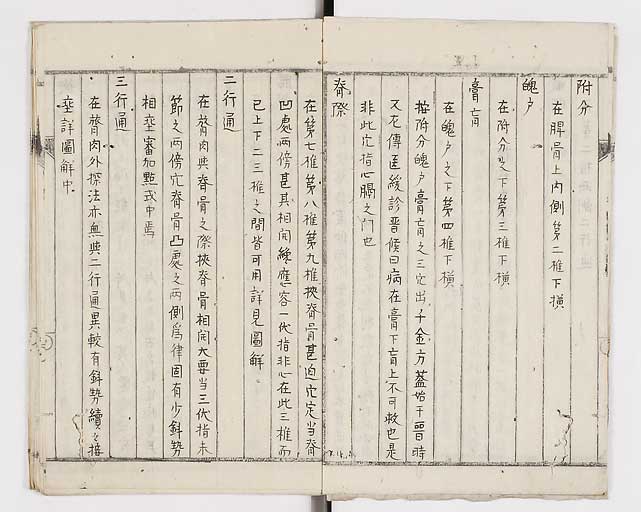 附分
在脾骨上內側第二椎下橫
魄户
在附分之下第三椎下橫
膏肓
在魄户之下第四椎下橫
按附分魄户膏肓之三穴出千金方蓋始于晋時
又左傳医緩診晋候曰病在膏下肓上不可救也是
非此穴指心膈之门也
脊際
在第七椎第八椎第九椎挾脊骨甚迫穴定当脊
凹處两傍甚其相间纔應容一代指非心在此三椎而
已上下二三椎之間皆可用詳見圖解
二行通
在膂肉與脊骨之際挾脊骨相间大要当三代指未
節之两傍穴脊骨凸處之两側為律固有少斜势
相率審加點式中焉
三行通
在膂肉外探法亦無與二行通異較有斜势續之接
率詳圖解中